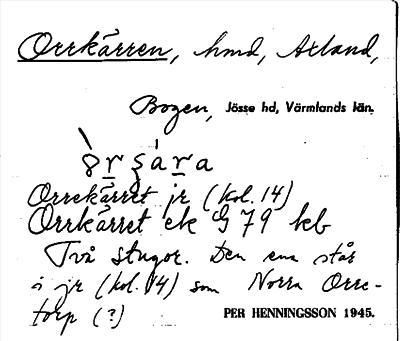 Orrkärren, hmd, Axland,
Bogen, Jösse hd, Värmlands län.
Orrekärret jr (kol. 14)
Orrkärret ek G 79 kb
Två stugor. Den ena står
i jr (kol. 14) som Norra Orre-
torp (?) PER HENNINGSSON 1945.